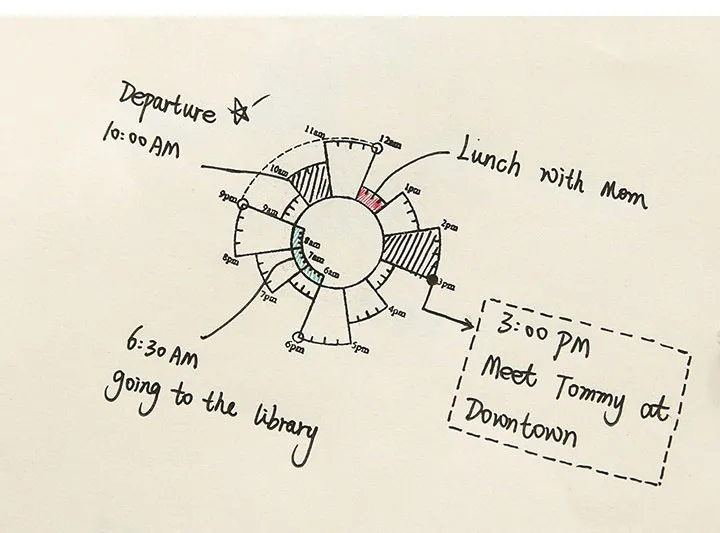 Departure
10:00 AM
11am
12am
Lunch with Mom
10am
1pm
9pm
9am
2pm
8am
7am
6am
8pm
3pm
7pm
4pm
6pm
5pm
3:00 PM
Meet Tommy at
Downtown
6:30 AM
going to the library